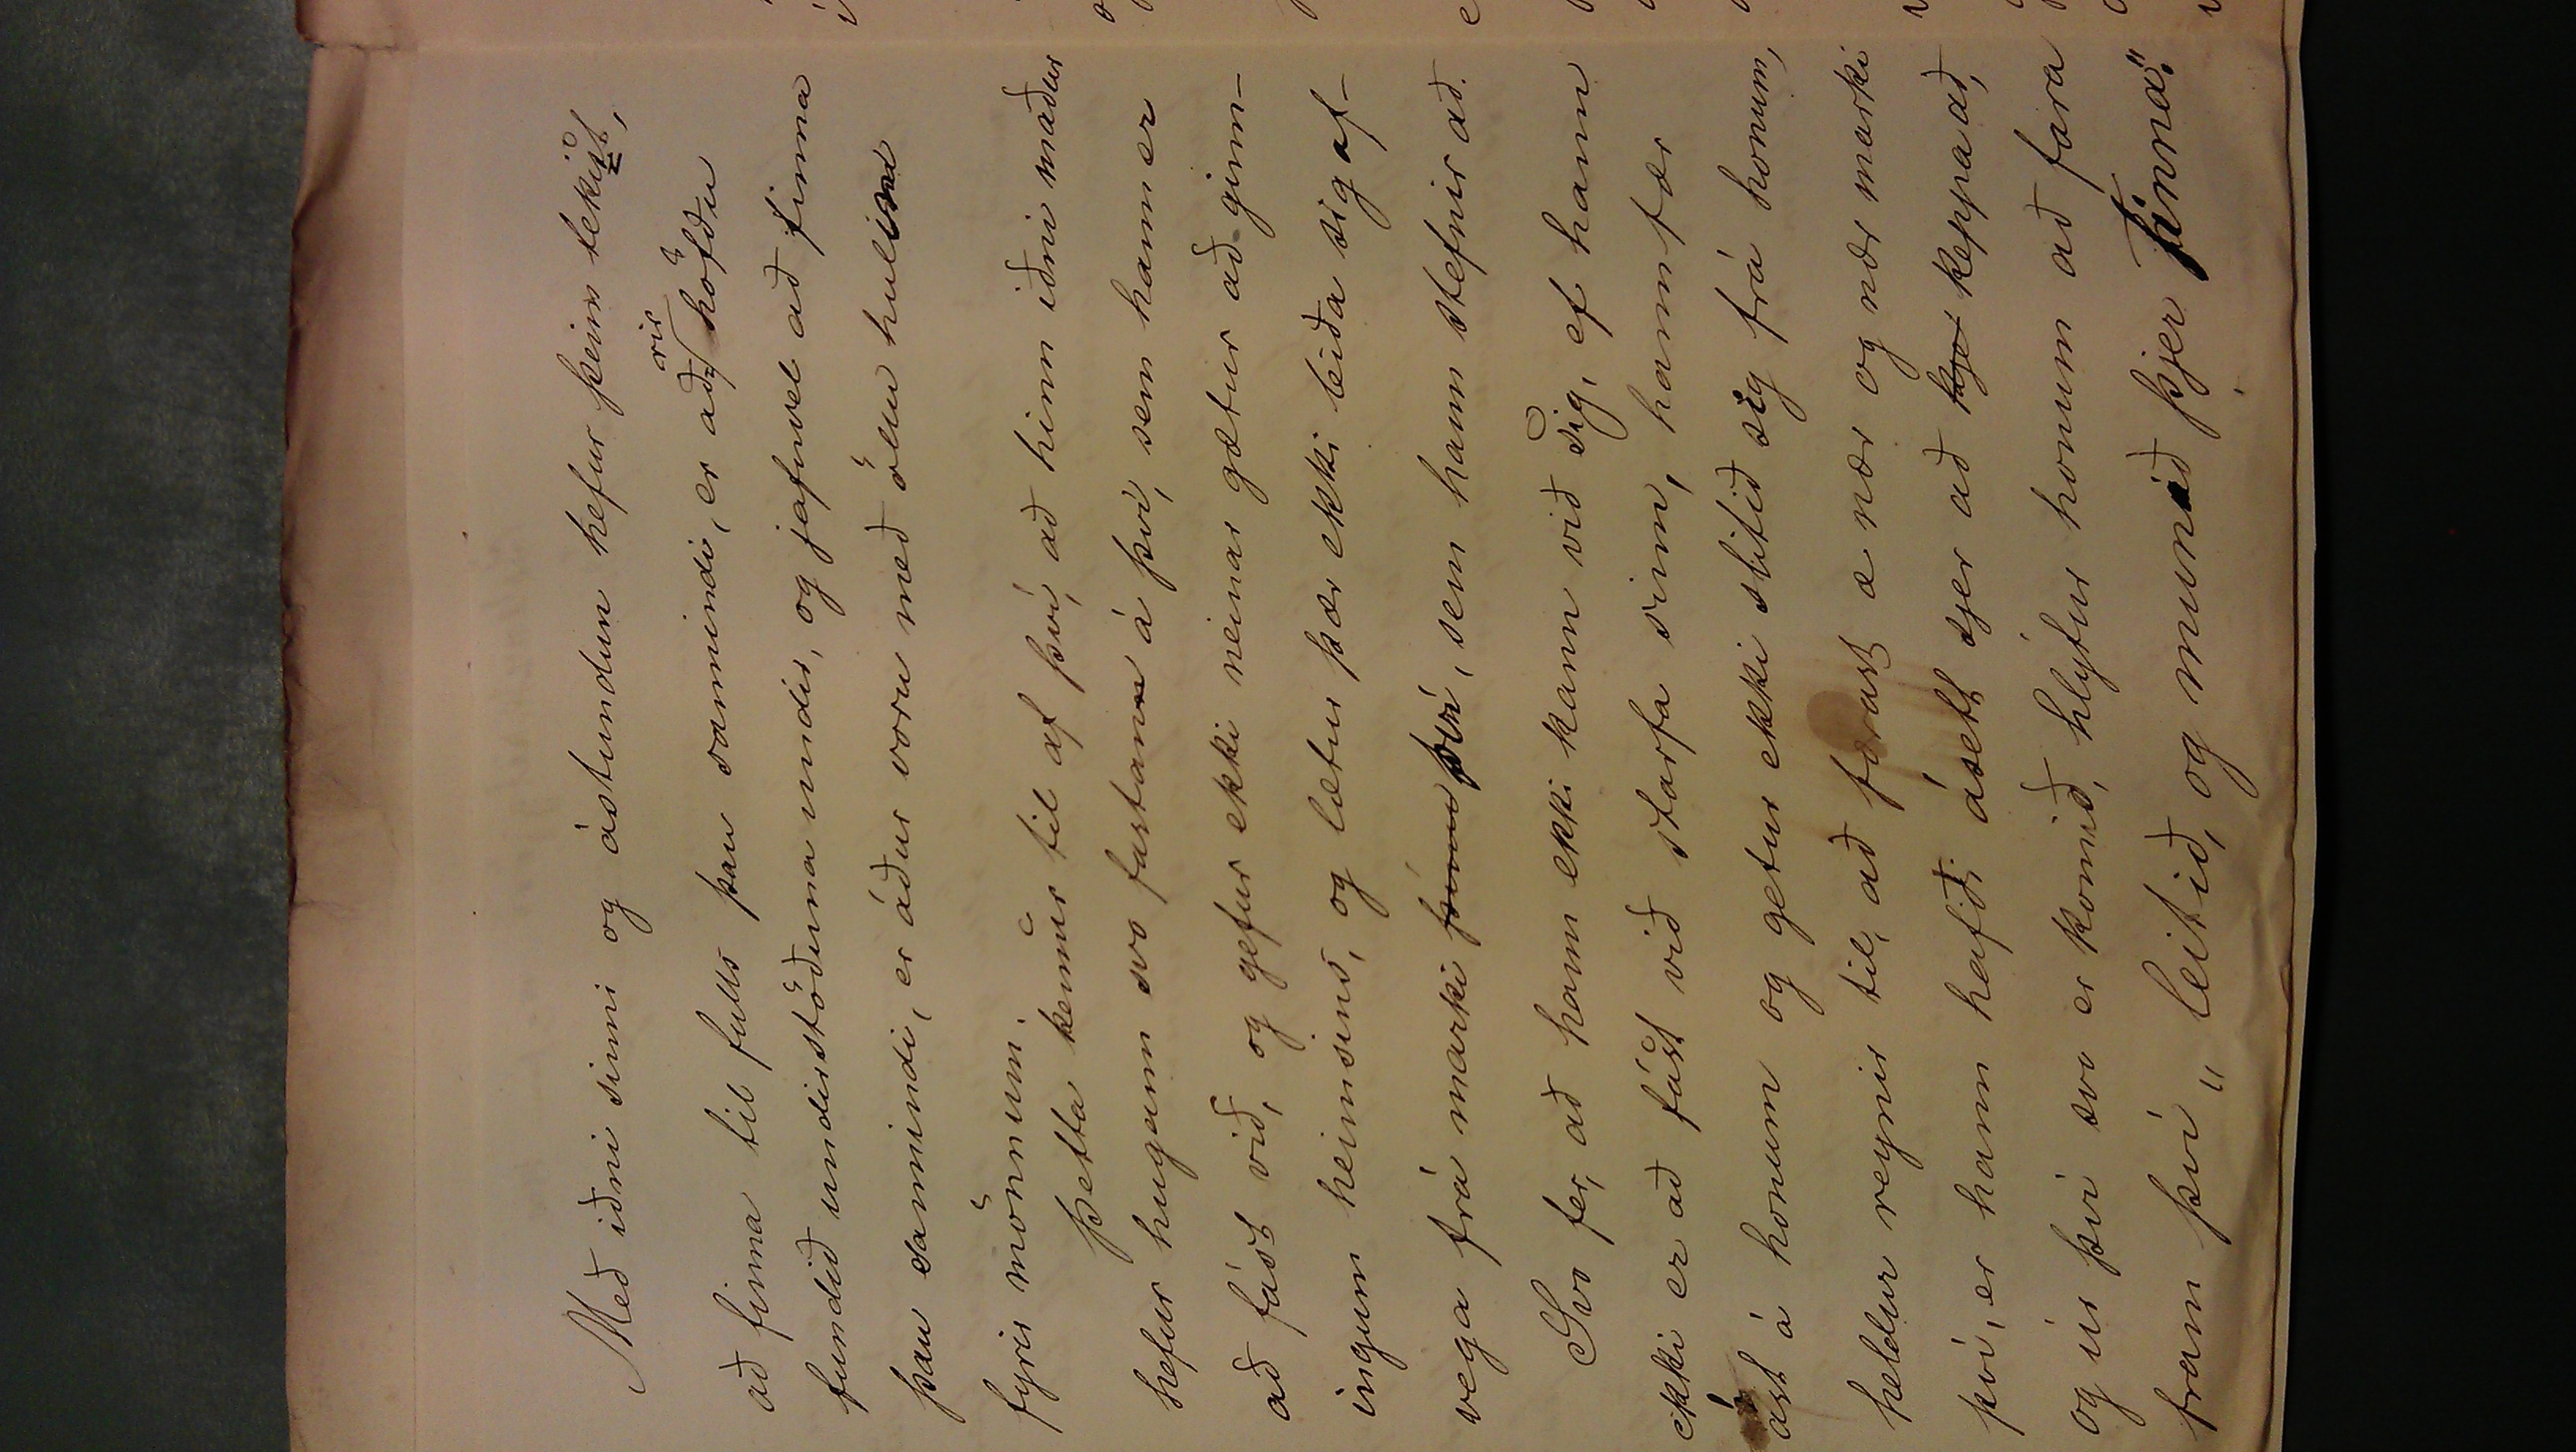 Með iðni sinni og ástundun hefur þeim tekist,
að finna til fulls þau sannindi, er aðrir höfðu
fundið undirstöðuna undir, og jafnvel að finna
þau sannindi, er áður voru með öllu hulin
fyrir mönnum.
Þetta kemur til af því, að hinn iðni maður
hefur hugann svo fastann á því, sem hann er
að fást við, og gefur ekki neinar gætur að ginn-
ingum heimsins, og lætur þær ekki leiða sig af-
vega frá marki því, sem hann stefnir að.
Svo fer, að hann ekki kann við sig, ef hann
ekki er að fást við starfa sinn, hann fær
ást á honum og getur ekki slitið sig frá honum,
heldur reynir til, að færast æ nær og nær marki
því, er hann hafði ásett sjer að keppa að,
og úr því svo er komið, hlýtur honum að fara
fram því „leitið, og munið þjer finna".